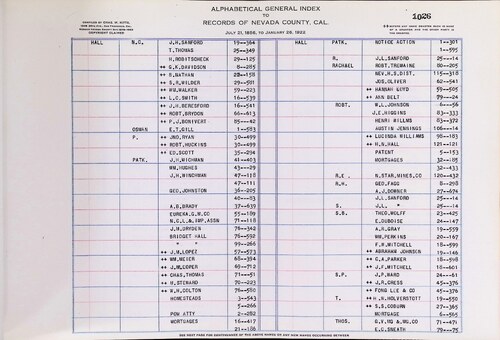 ALPHABETICAL GENERAL INDEX
TO
RECORDS OF NEVADA COUNTY, CAL.
JULY 21, 1856, TO JANUARY 28, 1922
COPYRIGHT CLAIMED
1026
HALL N.C. J.H. SANFORD 19—384
T. THOMAS 25—349
H. ROBITSCHECK 29—125
++ G.K. DAVIDSON 8—285
++ B. NATHAN 22—158
++ S.R. WILDER 29—581
++ WM. WALKER 59—223
++ L.C. SMITH 16—539
++ J.H. BERESFORD 16—541
++ ROBT. BRYDON 66—613
++ P.J. BONIVERT 85—42
OSMAN E.T. GILL 1—583
P. ++ JNO. RYAN 30—499
++ ROBT. HUCKINS 30—499
++ ED. SCOTT 35—294
PATK. J.H. WICHMAN 41—403
WM. HUGHES 43—29
J.H. WINCHMAN 47—110
47—111
GEO. JOHNSTON 36—205
40—83
A.B. BRADY 37—639
EUREKA G.M. CO 55—109
N.C.L. & IMP. ASSN 71—118
J.M. DRYDEN 78—342
BRIDGET HALL 76—592
" " 99—266
++ J.M. LOPER 57—573
++ WM. MEIER 68—394
++ J.M. LOPER 68—712
++ CHAS. THOMAS 71—51
++ H. STENARD 70—223
++ W.H. COLTON 78—580
HOMESTEADS 3—543
5—266
POW ATTY 2—282
MORTGAGES 16—417
21—186
HALL PATK. NOTICE ACTION 1—301
1—595
R. J.L. SANFORD 25—14
RACHAEL ROBT. TREMAINE 80—205
NEV. H.S. DIST 115—318
JOS. OLIVER 62—541
++ HANNAH BOYD 59—505
++ ANN BELT 79—24
ROBT. W.L. JOHNSON 6—56
J.E. HIGGINS 83—333
HENRI WILLMS 83—372
AUSTIN JENNINGS 106—14
++ LUCINDA WILLIAMS 98—183
++ H.N. HALL 121—121
PATENT 5—153
MORTGAGES 32—185
32—433
R.E. N. STAR MINES, CO 120—432
R.H. GEO. FAGG 8—298
A.J. DOWNER 27—674
J.L. SANFORD 25—14
S. J.L. " 25—14
S.B. THEO. WOLFF 23—425
E. DUBOISE 24—147
A.H. GRAY 19—559
WM. PERKINS 20—167
F.H. MITCHELL 18—599
++ ABRAHAM JOHNSON 19—146
++ G.A. PARKER 18—598
++ J.F. MITCHELL 18—601
S.P. J.P. WARD 24—61
++ J.R. CRESS 45—376
++ FONG LEE & CO 45—376
T. ++ H.N. HOLVERSTOTT 19—550
++ S.S. COBURN 27—365
MORTGAGE 6—565
THOS. E.V. MG & MG. CO 71—471
E.C. SNEATH 79—75